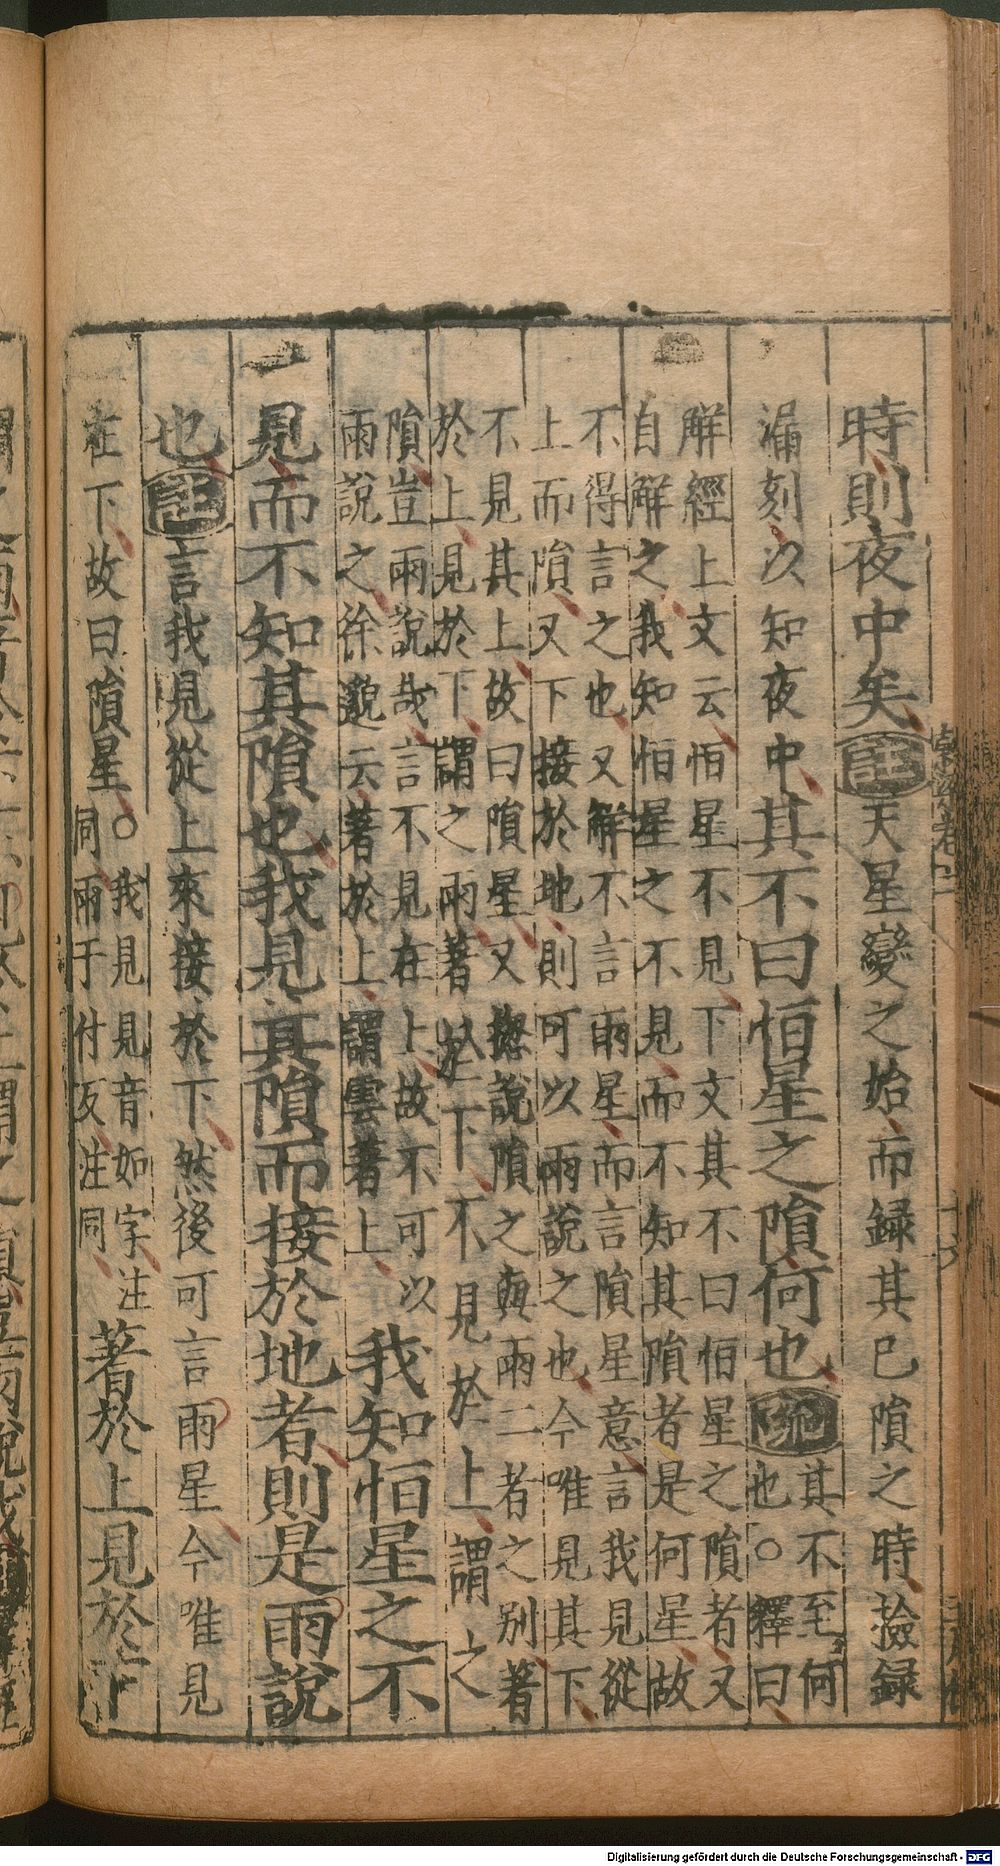 時則夜中矣註天星變之始而録其已隕之時撿録
漏刻以知夜中其不曰恒星之隕何也疏其不至何
也○釋曰
解經上文云恒星不見下文其不曰恒星之隕者又
自解之我知恒星之不見而不知其隕者是何星故
不得言之也又解不言雨星而言隕星意言我見從
上而隕又下接於地則可以雨說之也今唯見其下
不見其上故曰隕星又揔說隕之與雨二者之别著
於上見於下謂之雨著於下不見於上謂之
隕豈雨說哉言不見在上故不可以
雨說之徐邈云著於上謂雲著上我知恒星之不
見而不知其隕也我見其隕而接於地者則是雨說
也註言我見從上來接於下然後可言雨星今唯見
在下故曰隕星○我見見音如字注
同雨于付反注同著於上見於下
Digitalisierung gefördert durch die Deutsche Forschungsgemeinschaft - DFG